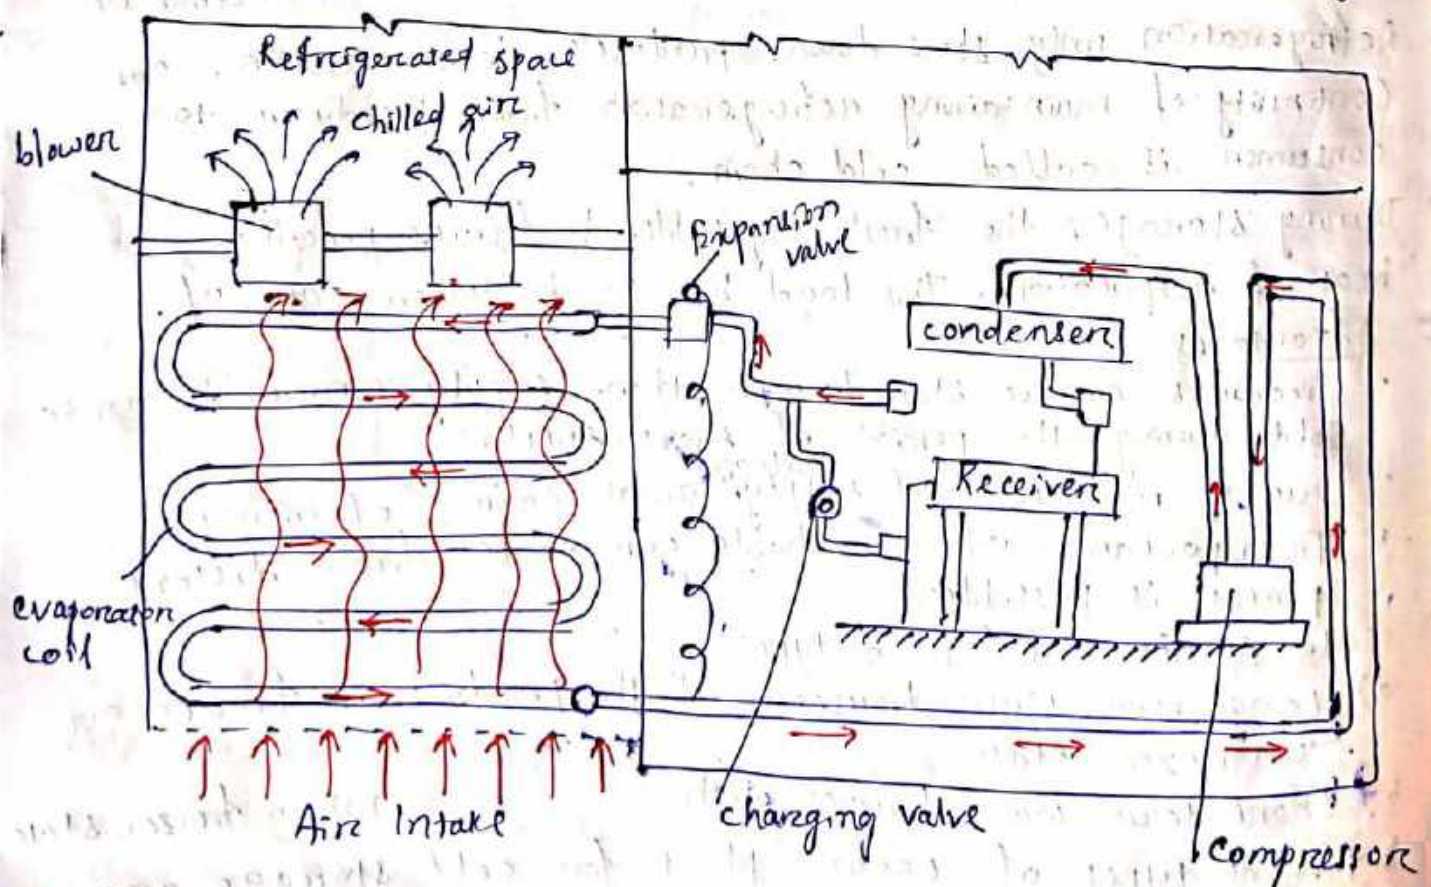 Refrigerated space
chilled air
blower
Expansion
valve
condenser
Receiver
evaporator
coil
Air Intake
charging valve
compressor